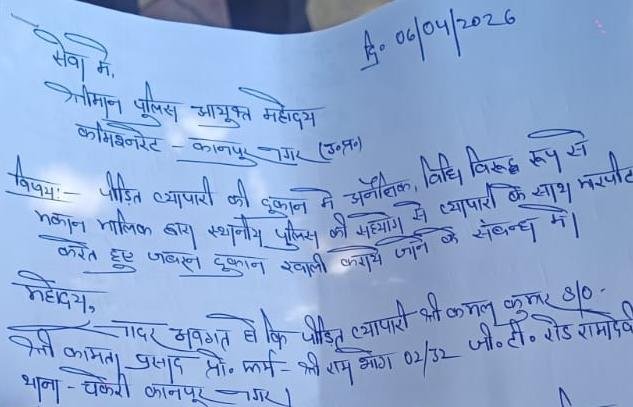 दि० 06/04/2026
सेवा में,
श्रीमान पुलिस आयुक्त महोदय
कमिश्नरेट - कानपुर नगर (उ०प्र०)
विषय:- पीड़ित व्यापारी की दुकान में अनैतिक, विधि विरुद्ध रूप से
मकान मालिक द्वारा स्थानीय पुलिस की सहयोग से व्यापारी के साथ मारपीट
करते हुए जबरन दुकान खाली कराये जाने के संबन्ध में।
महोदय,
सादर अवगत हो कि पीड़ित व्यापारी श्री कमल कुमार S/O.
श्री कामता प्रसाद प्रो. फर्म - श्री राम भोग 02/32 जी०टी० रोड रामादेवी
थाना - चकेरी कानपुर नगर।